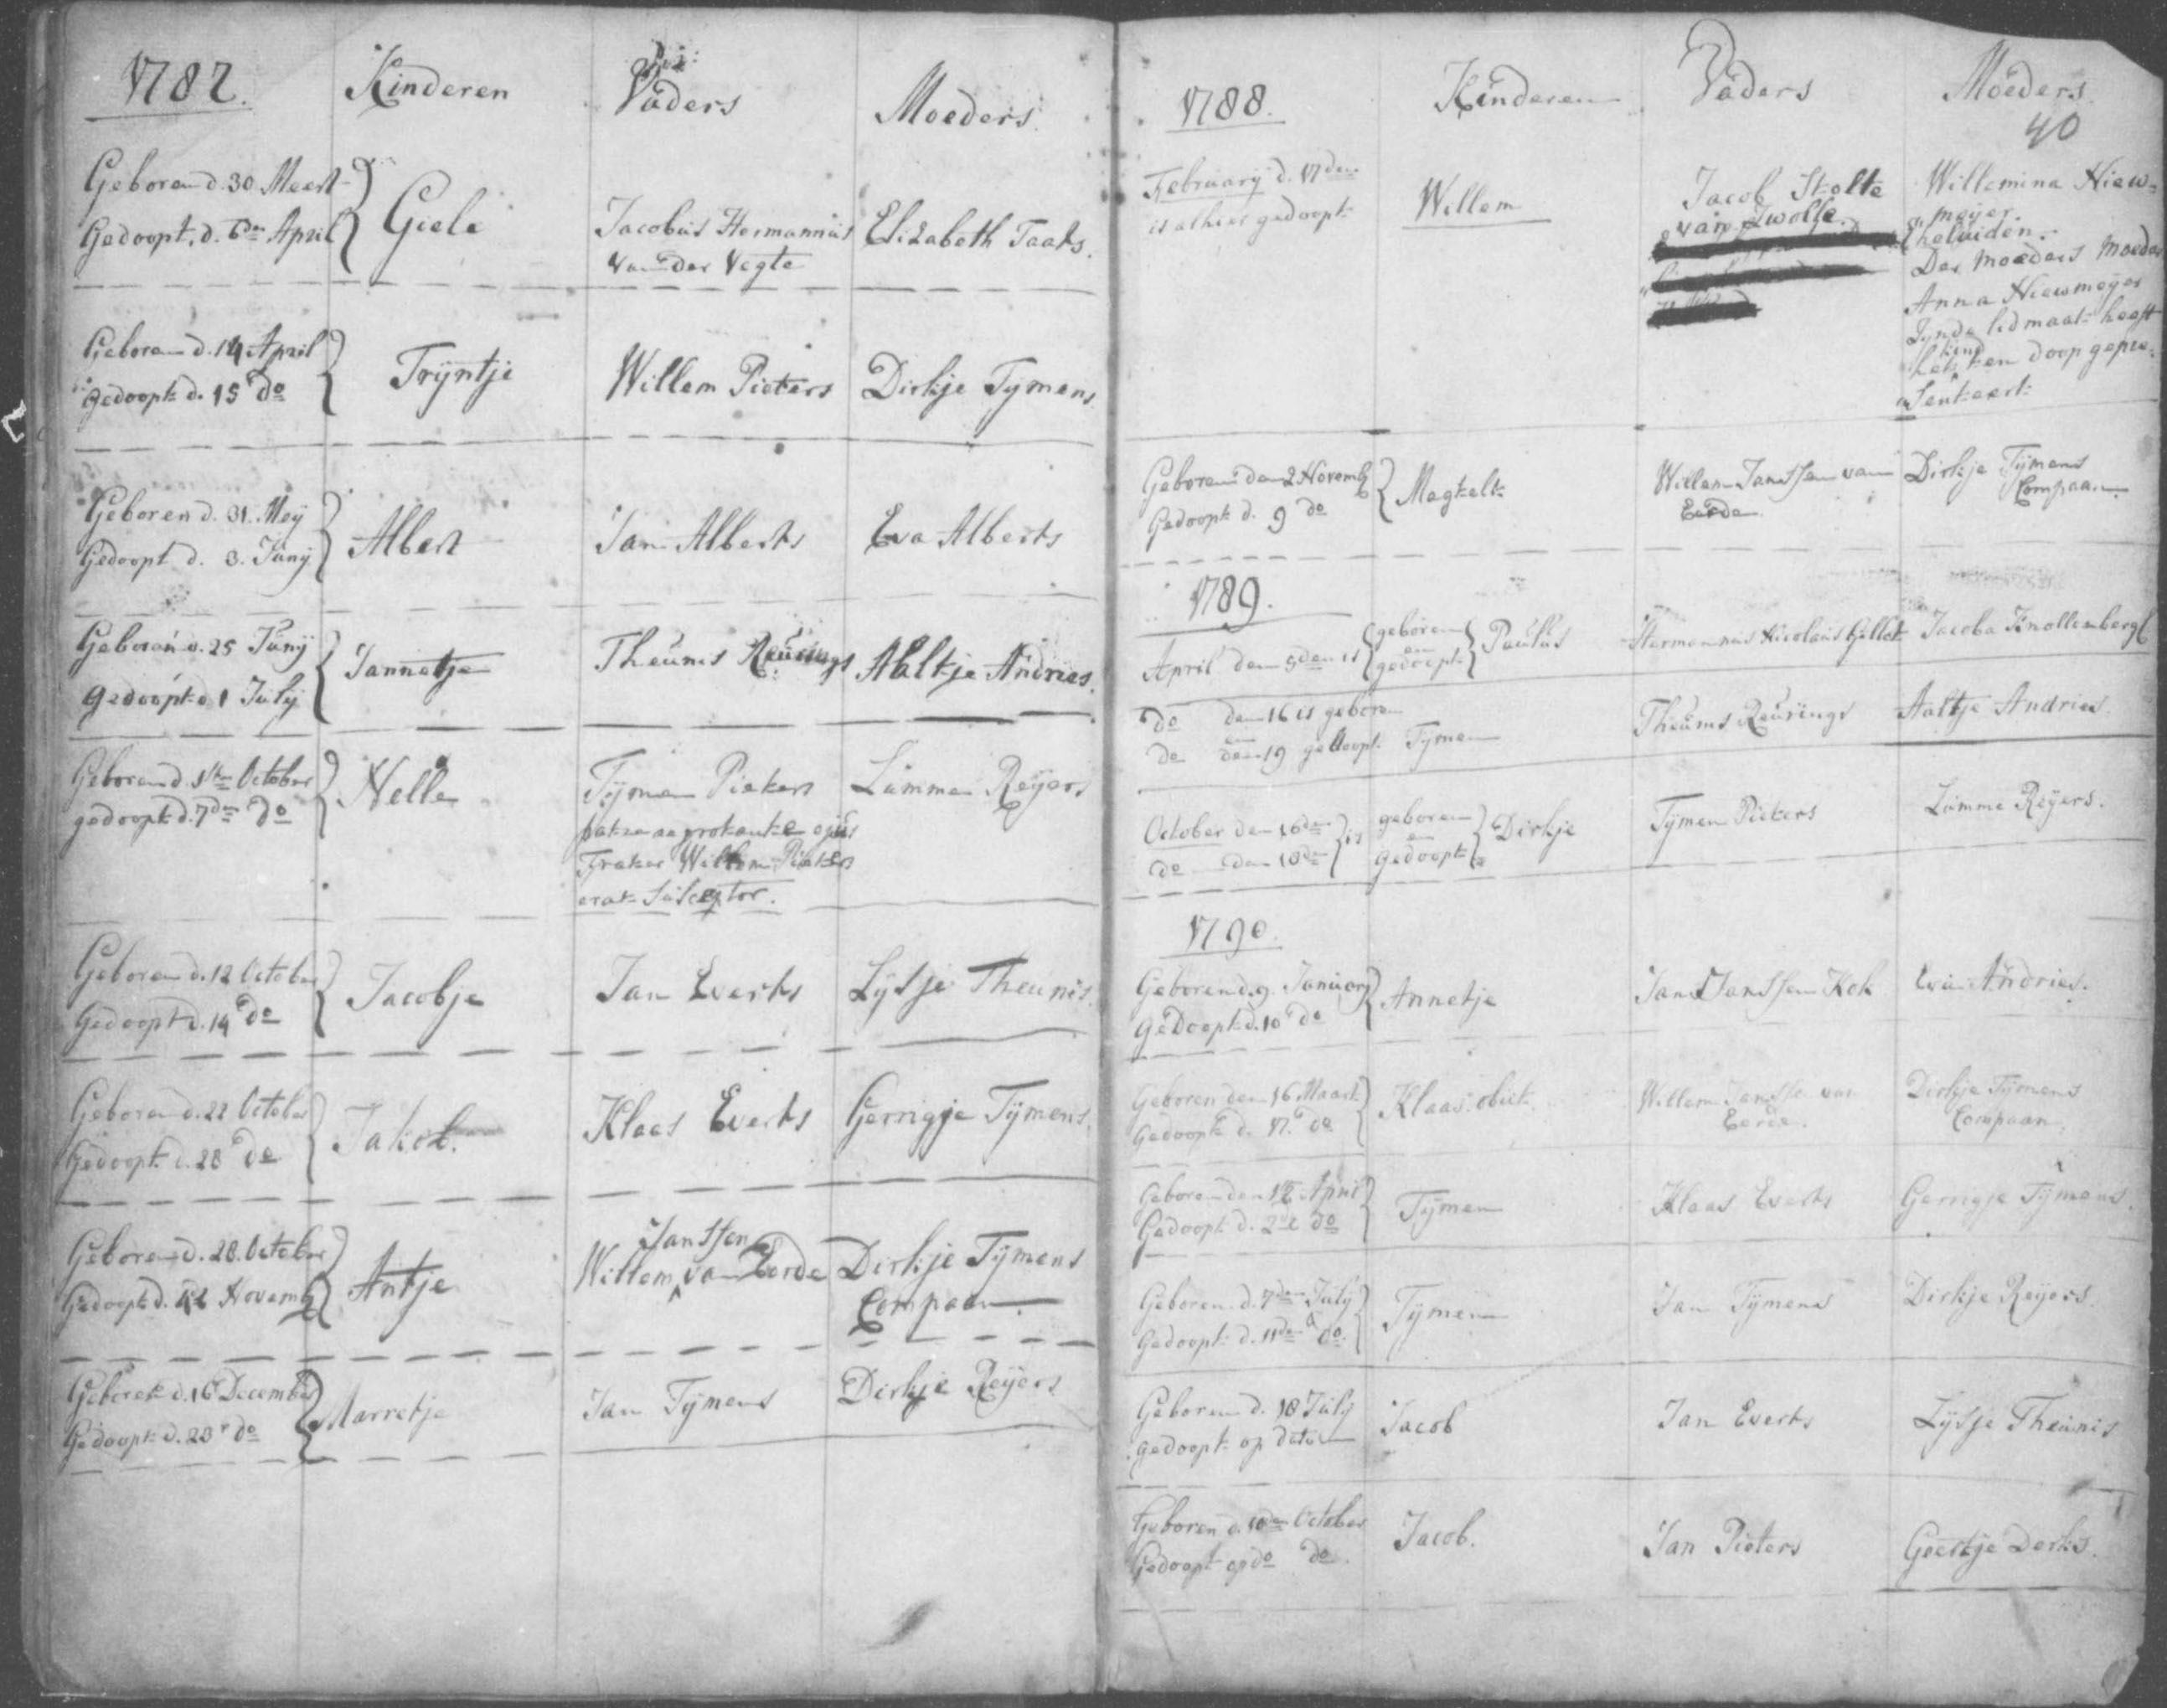 1787. Kinderen Vaders Moeders.
Geboren d. 30 Meert
Gedoopt, d. 6den April Giele Jacobus Hermannus Elizabeth Taats.
van der Vegte
Geboren d. 14 April
Gedoopt d. 15 do Trÿntje Willem Pieters Dirkje Tymens.
Geboren d. 31. Meÿ
Gedoopt d. 3. Junÿ Albert Jan Alberts Eva Alberts
Geboren d. 25 Junÿ
Gedoopt d 1 Julÿ Jannetje Theunis Reurings Aaltje Andries.
Geboren d. 1sten October
gedoopt d. 7den do Nelle Tÿmen Pieters Lumme Reÿers
patre aegrotante ejus
frater Willem Pieters
erat Susceptor.
Geboren d. 12 October
Gedoopt d. 14 do Jacobje Jan Everts Lÿsje Theunis.
Geboren d. 22 October
Gedoopt d. 28 do Jakob. Klaas Everts Gerrigje Tÿmens.
Geboren d. 28. October Janssen
Gedoopt d. Novemb Antje Willem van Eerde Dirkje Tÿmens
Compaan.
Geboren d. 16 December
Gedoopt d. 23 do Marretje Jan Tÿmens Dirkje Reÿers
1788. Kinderen Vaders Moeders.
40
February d. 17den
is alhier gedoopt Willem Jacob Stolte Willemina Niew-
van Zwolle. meÿer.
Eheluiden.
Der Moeders Moeder
Anna Niewmeÿer
Zÿnde lidmaat heeft
het kind ten doop gepre-
senteert
Geboren den 2 Novemb
Gedoopt d. 9 do Magtelt Willem Janssen van Dirkje Tÿmens
Eerde Compaan.
1789.
April den 5den is geboren en gedoopt Paulus Hermannus Nicolaus Gillot Jacoba Knollenberg
do den 16 is geboren
en
do den 19 gedoopt Tÿmen Theunis Reurings Aaltje Andries.
October den 16den
do den 18den is geboren en gedoopt Dirkje Tÿmen Pieters Lumme Reÿers.
1790.
Geboren d. 9 Januarÿ
Gedoopt d. 10 do Annetje Jan Janssen Kok Eva Andries.
Geboren den 16 Maart
Gedoopt d. 17. do Klaas. obiit. Willem Janssen van Dirkje Tÿmens
Eerde. Compaan.
Geboren den April
Gedoopt d. do Tÿmen Klaas Everts Gerrigje Tÿmens.
Geboren d. 7den Julÿ
Gedoopt d. 11den do. Tÿmen Jan Tÿmens Dirkje Reÿers.
Geboren d. 18 Julÿ
gedoopt op dato Jacob Jan Everts Lÿsje Theunis
Geboren d. 10den October
Gedoopt op do do. Jacob. Jan Pieters Geertje Derks.